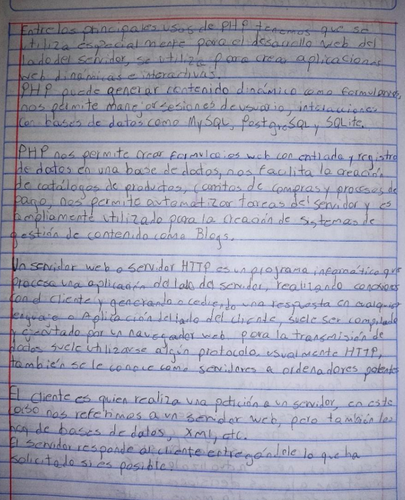 Entre los principales usos de PHP tenemos que se
utiliza especialmente para el desarrollo web del
lado del servidor, se utiliza para crear aplicaciones
web dinámicas e interactivas.
PHP puede generar contenido dinámico como formularios,
nos permite manejar sesiones de usuario, interacciones
con bases de datos como MySQL, PostgreSQL y SQLite.
PHP nos permite crear formularios web con entrada y registro
de datos en una base de datos, nos facilita la creación
de catálogos de productos, carritos de compras y procesos de
pago, nos permite automatizar tareas del servidor y es
ampliamente utilizado para la creación de sistemas de
gestión de contenido como Blogs.
Un servidor web o servidor HTTP es un programa informático que
procesa una aplicación del lado del servidor, realizando conexiones
con el cliente y generando o cediendo una respuesta en cualquier
lenguaje o Aplicación del lado del cliente, suele ser compilado
y ejecutado por un navegador web, para la transmisión de
datos suele utilizarse algún protocolo, usualmente HTTP,
también se le conoce como servidores a ordenadores potentes
El cliente es quien realiza una petición a un servidor, en este
caso nos referimos a un servidor web, pero también los
hay de bases de datos, XML, etc.
El servidor responde al cliente entregándole lo que ha
solicitado si es posible